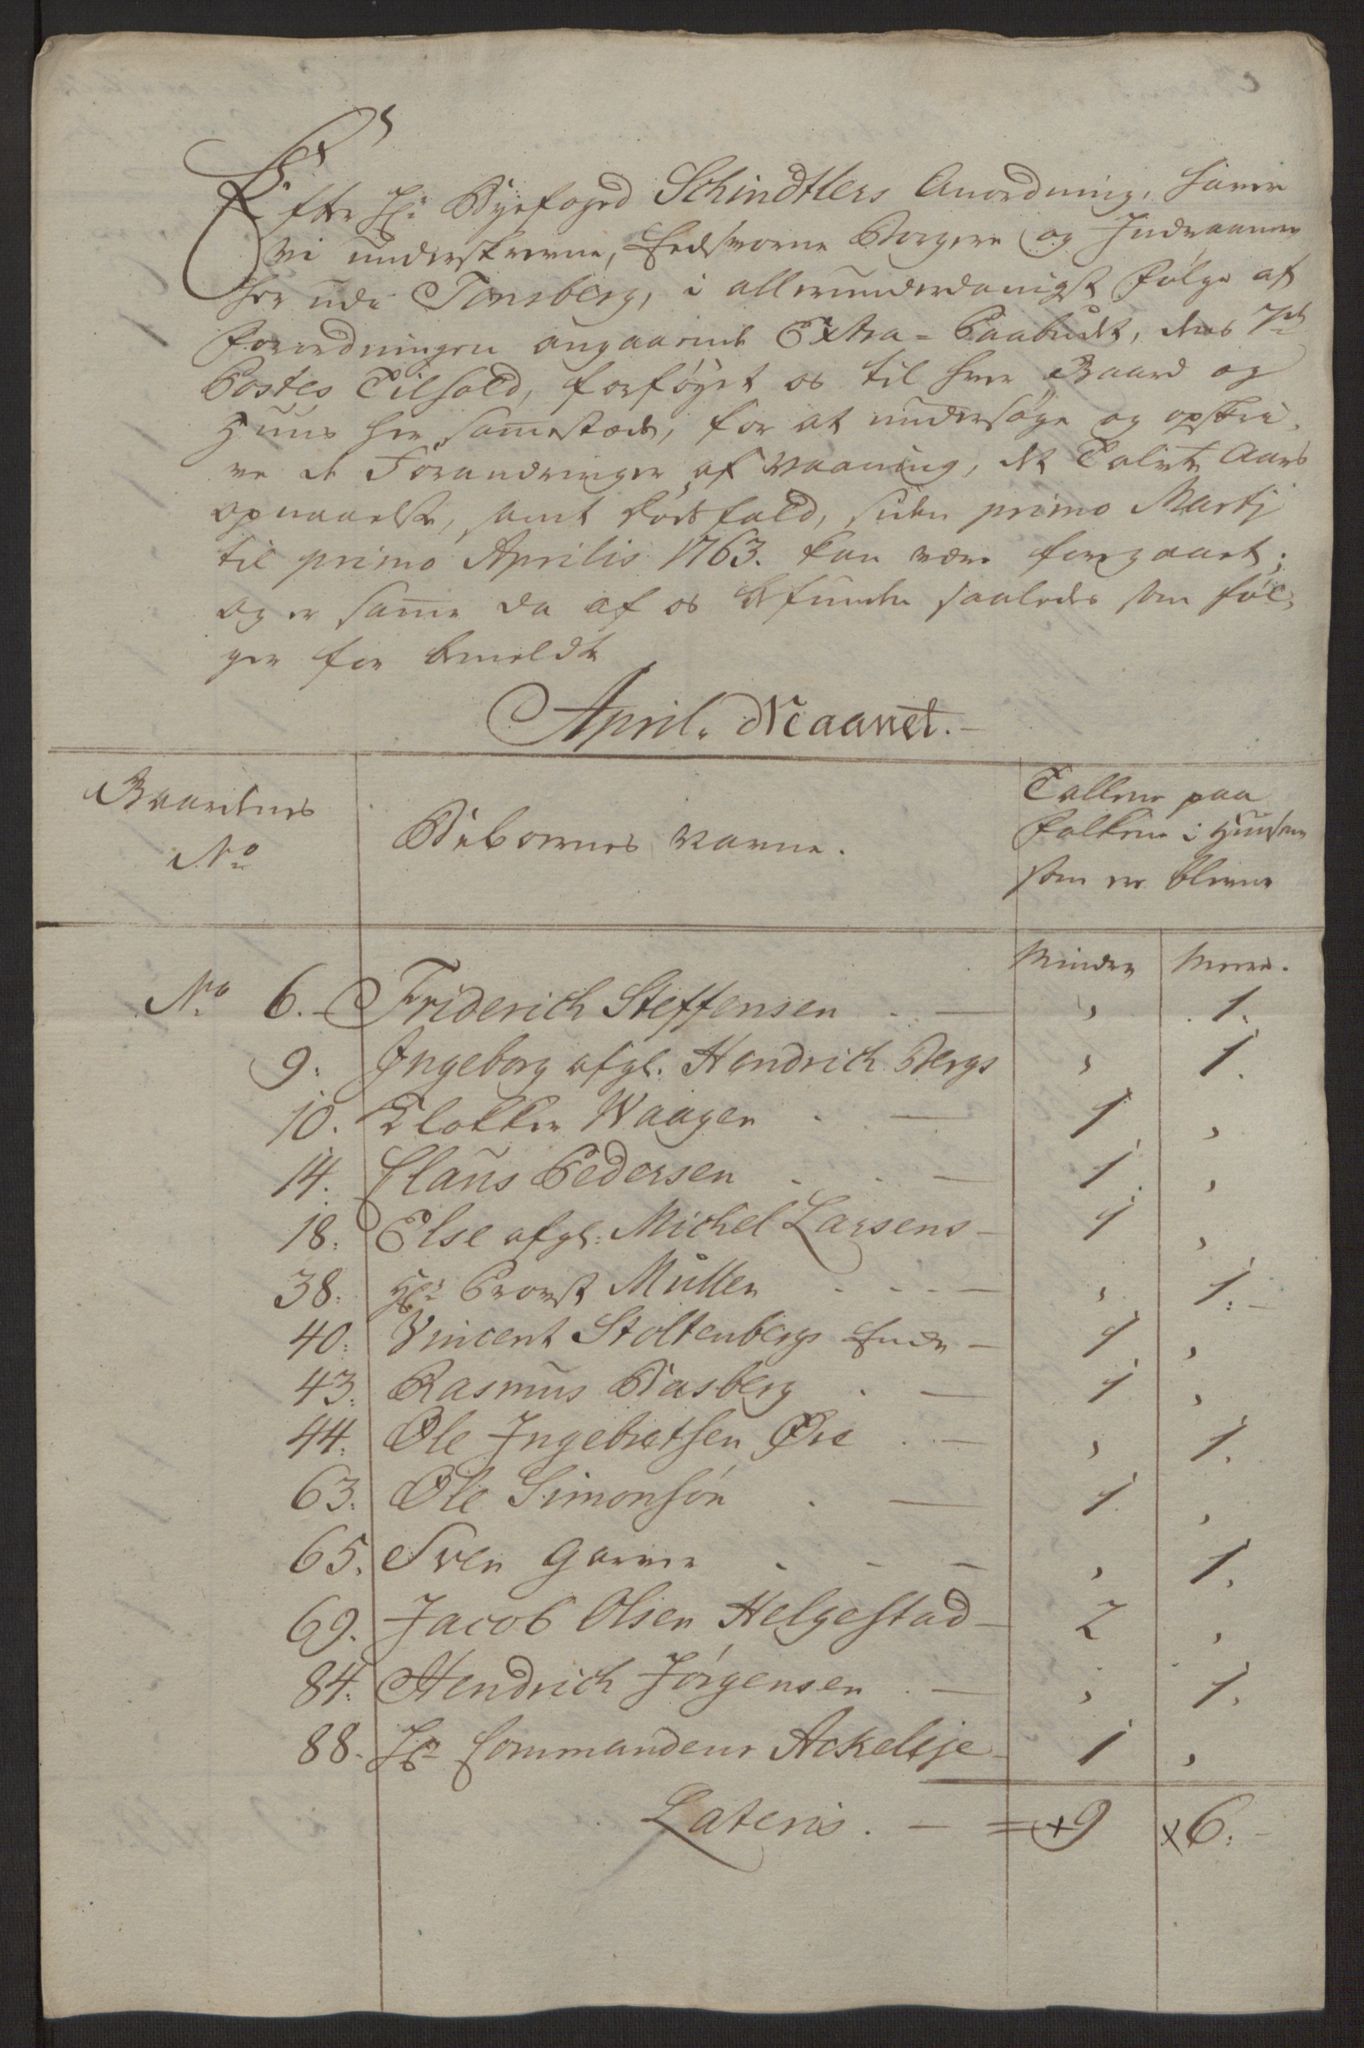 Efter Hr: Byefoged Schindtlers Anordning, haver
vi underskrevne, Eedsvorne Borgere og Indvaanere
her udi Tønsberg, i allerunderdanigst følge af
Forordningen angaaende Extra-Paabudt, dens 7de
Postes Tilhold, forføyet os til hver Gaard og
Huus her sammesteds, for at undersøge og opskri-
ve de Forandringer af Vaaning, det Tolvte Aars
opnaaelse, samt dødsfald, siden primo Martij
til primo Aprilis 1763. kan være foregaaet;
og er samme da af os befunden saaledes som føl-
ger for bemeldte
April. Maanet.
Gaardenes No
Beboernes Navne.
Tallene paa
Folkene i Huusene
som er blevne
Minder Meere.
No 6. Friderich Steffensen . — " 1.
9. Ingeborg afgl. Hendrich Bergs " 1.
10. Klokker Waagen . — 1 "
14. Claus Pedersen . . — 1. "
18. Else afgl: Michel Larsens — 1 "
38. Hr: Provst Müller . . . — " 1. —
40. Vincent Stoltenbergs Enke — 1 "
43. Rasmus Basberg . — 1 "
44. Ole Ingebretsen Øre . — " 1.
63. Ole Simonsøn . — 1. "
65. Sven Garver . — — " 1.
69. Jacob Olsen Helgestad — 2 "
84. Hendrich Jørgensen . — " 1.
88. Hr: Commandeur Ackeleje — 1 "
Lateris . — = +9 x6. —